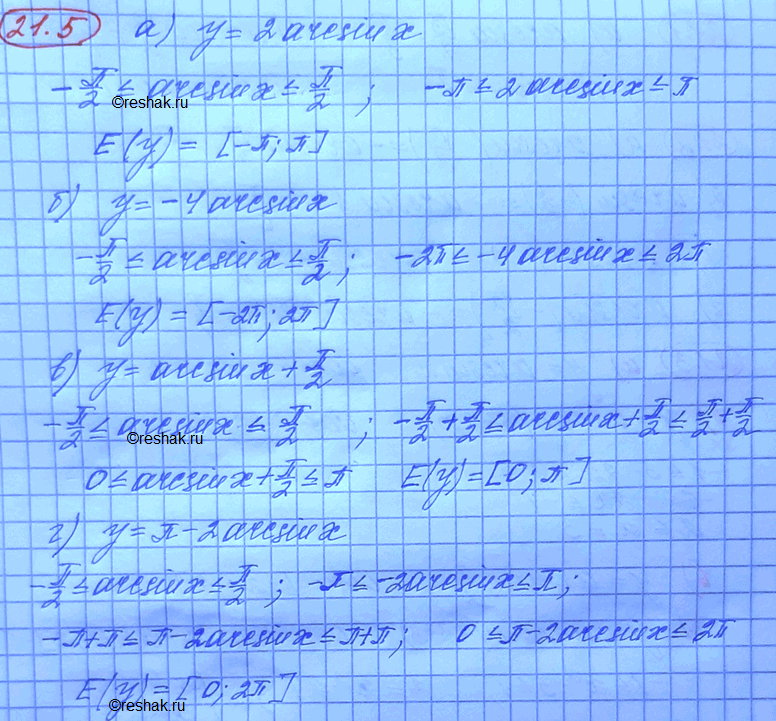 21.5 а) y = 2 arcsin x
-π/2 ≤ arcsin x ≤ π/2 ; -π ≤ 2 arcsin x ≤ π
©reshak.ru
E(y) = [-π; π]
б) y = -4 arcsin x
-π/2 ≤ arcsin x ≤ π/2 ; -2π ≤ -4 arcsin x ≤ 2π
©reshak.ru
E(y) = [-2π; 2π]
в) y = arcsin x + π/2
-π/2 ≤ arcsin x ≤ π/2 ; -π/2 + π/2 ≤ arcsin x + π/2 ≤ π/2 + π/2
©reshak.ru
0 ≤ arcsin x + π/2 ≤ π E(y) = [0; π]
г) y = π - 2 arcsin x
-π/2 ≤ arcsin x ≤ π/2 ; -π ≤ -2 arcsin x ≤ π ;
-π + π ≤ π - 2 arcsin x ≤ π + π ; 0 ≤ π - 2 arcsin x ≤ 2π
E(y) = [0; 2π]
©reshak.ru